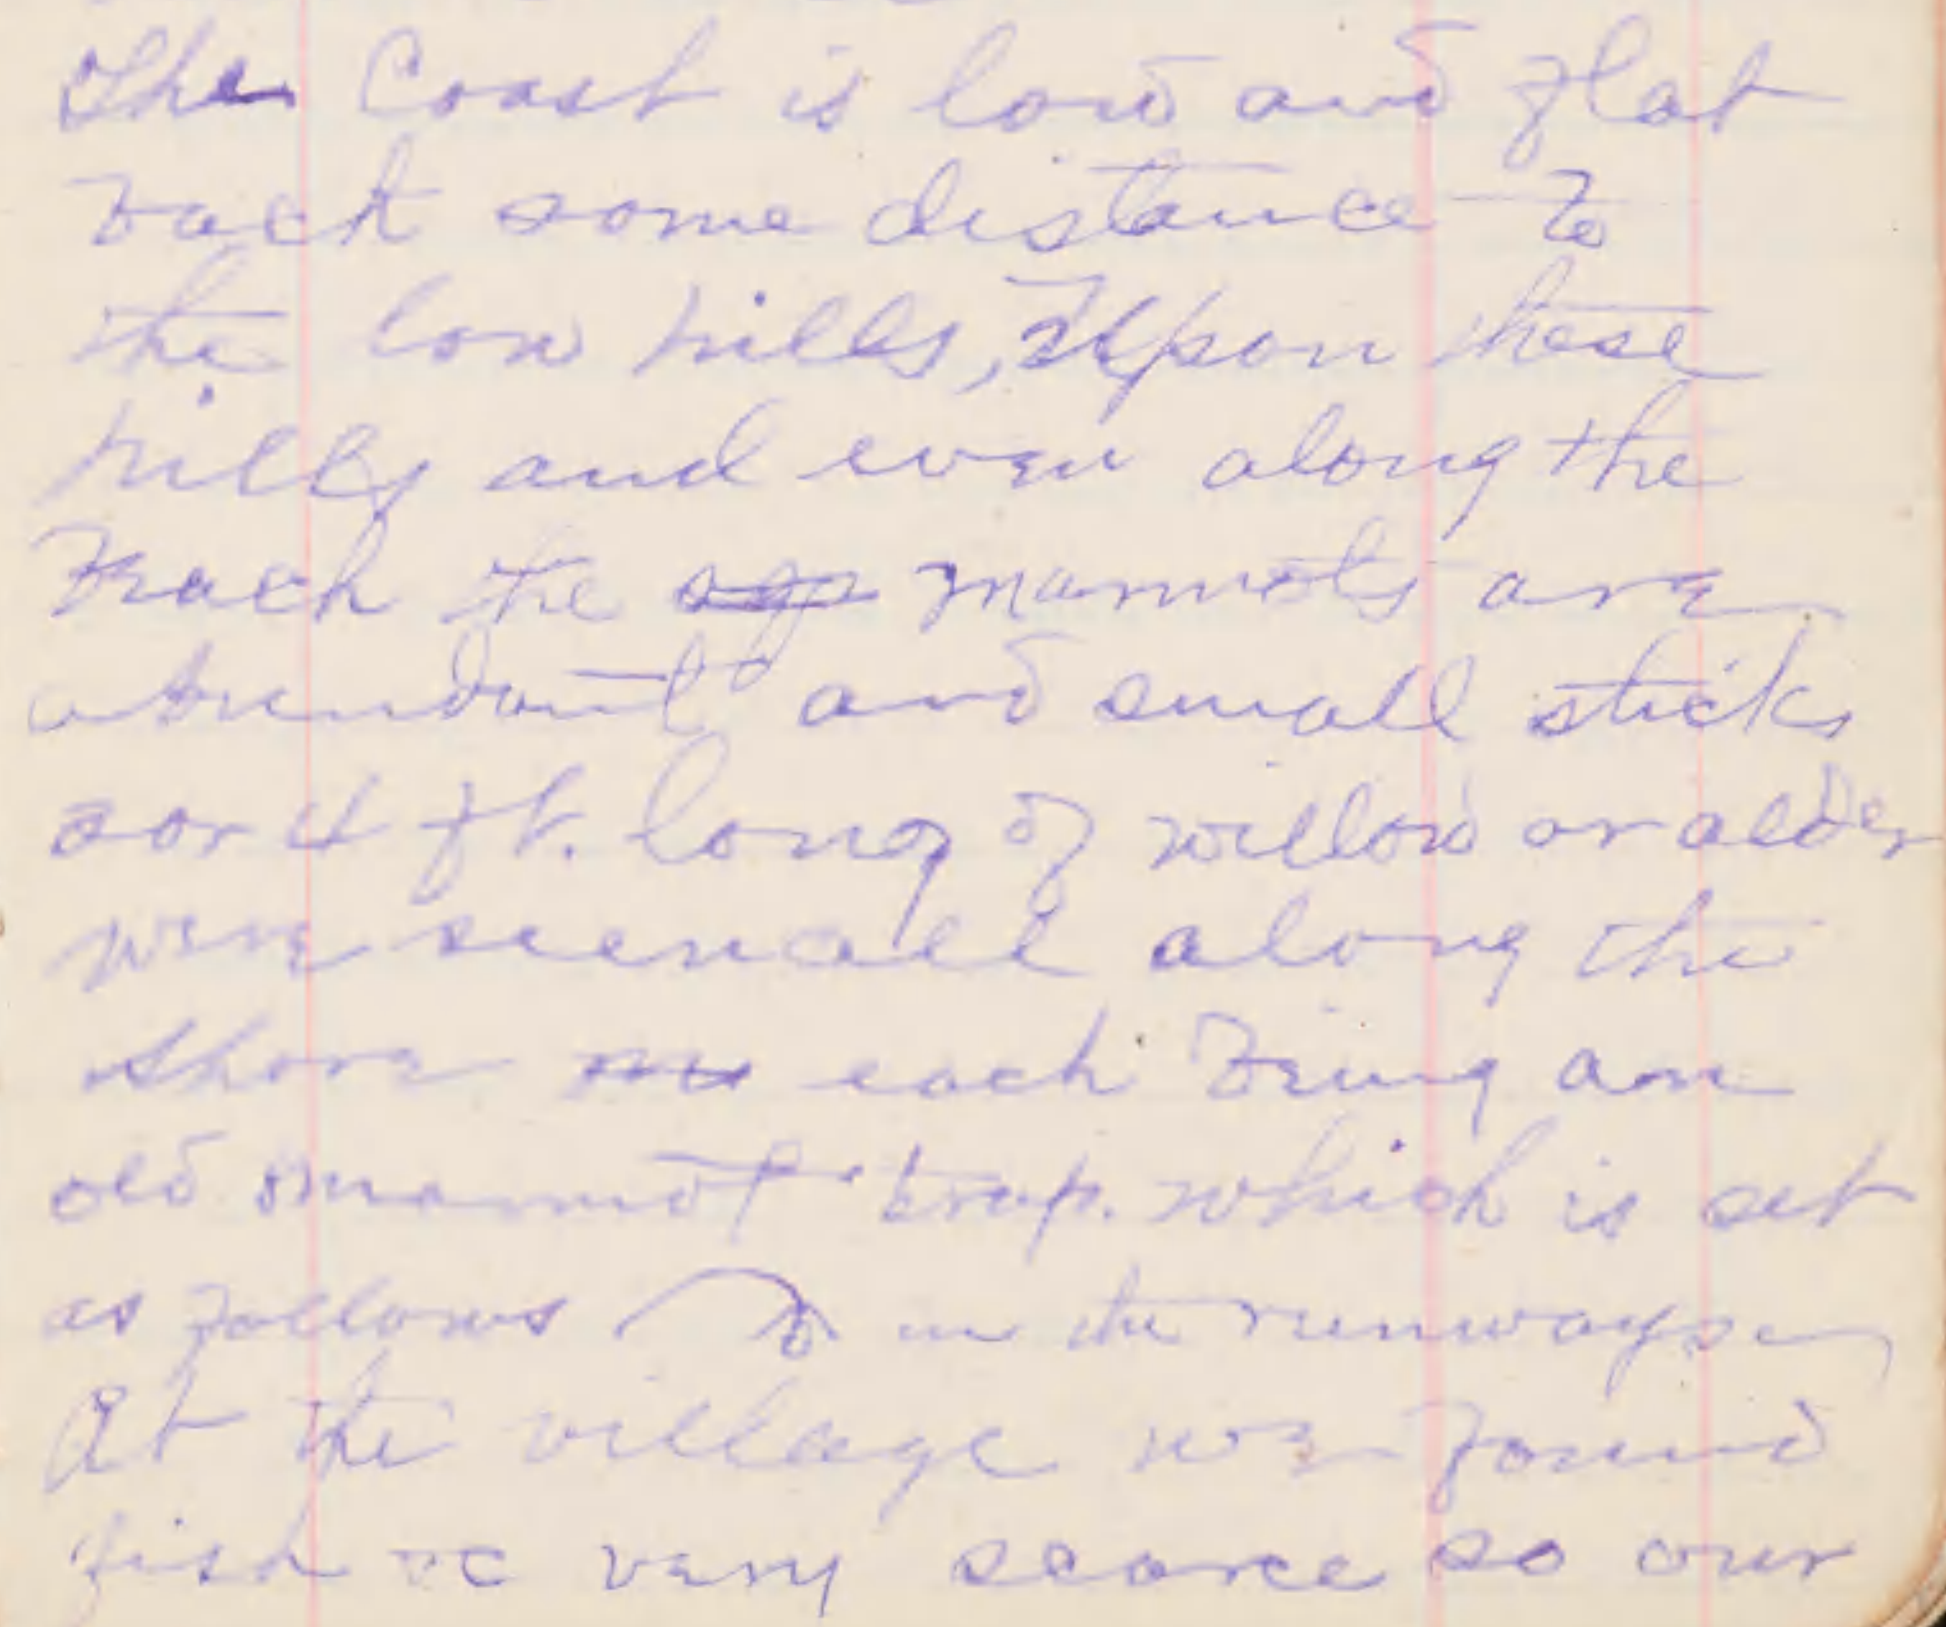 The Coast is low and flat
back some distance to
the low hills, Upon these
hills and even along the
beach the marmots are
abundant and small sticks
3 or 4 ft. long of willow or alder
were seen all along the
shore each being an
old marmot trap. which is set
as follows in the runways
At the village we found
fish &c very scarce so our